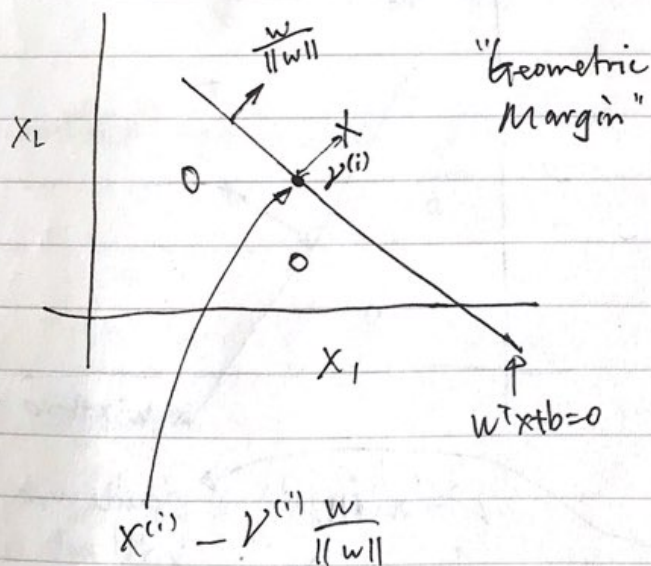 w/||w||
"Geometric
Margin"
X₂
X
γ⁽ⁱ⁾
O
O
X₁
wᵀx+b=0
x⁽ⁱ⁾ - γ⁽ⁱ⁾ w/||w||